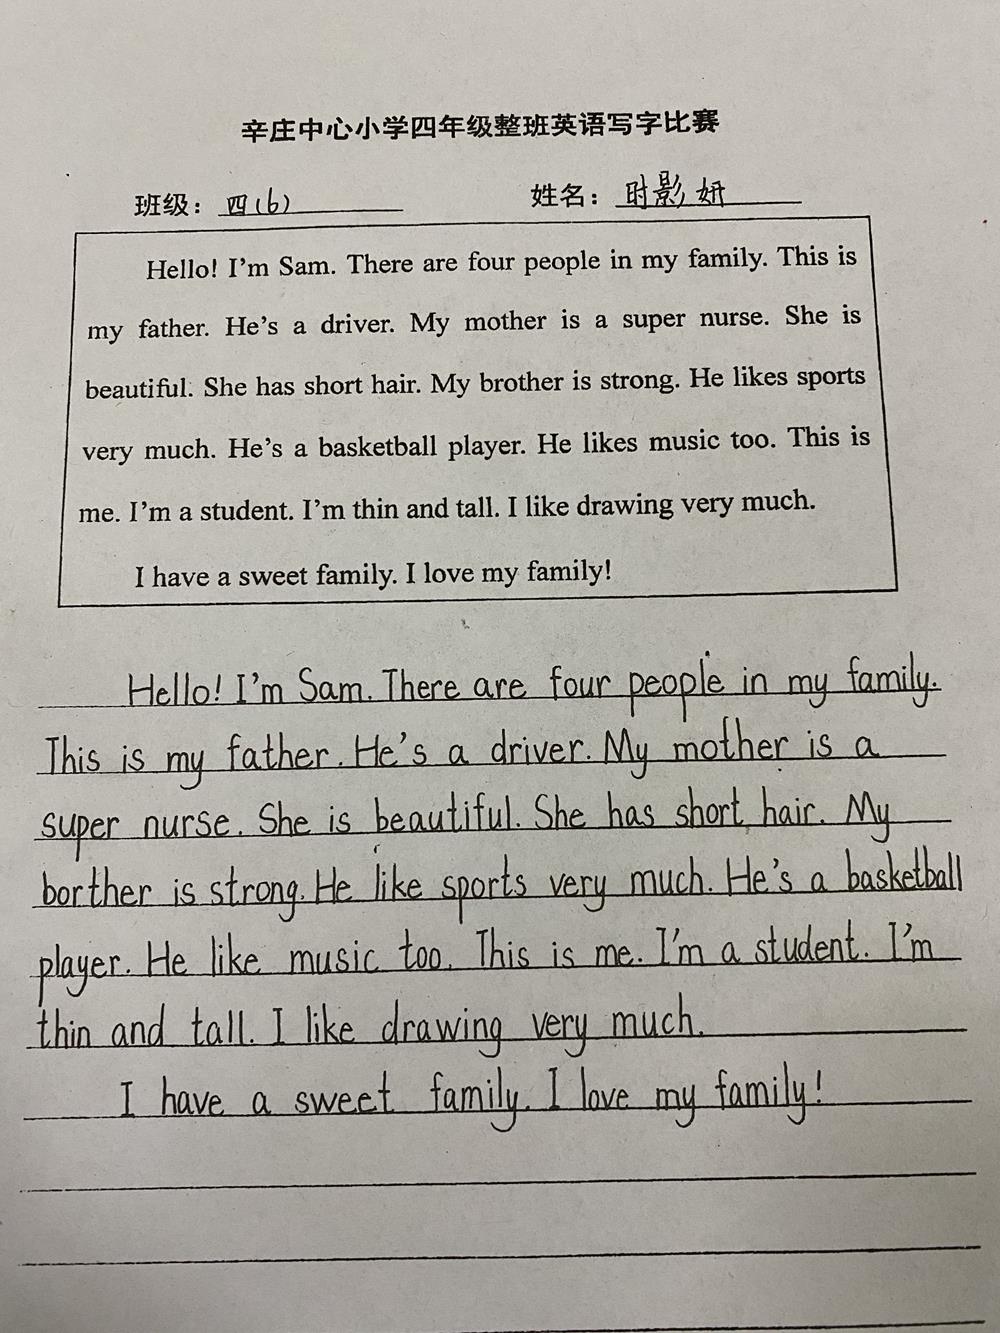 辛庄中心小学四年级整班英语写字比赛
班级：四(6) 姓名：时影妍
Hello! I'm Sam. There are four people in my family. This is
my father. He's a driver. My mother is a super nurse. She is
beautiful. She has short hair. My brother is strong. He likes sports
very much. He's a basketball player. He likes music too. This is
me. I'm a student. I'm thin and tall. I like drawing very much.
I have a sweet family. I love my family!
Hello! I'm Sam. There are four people in my family.
This is my father. He's a driver. My mother is a
super nurse. She is beautiful. She has short hair. My
borther is strong. He like sports very much. He's a basketball
player. He like music too. This is me. I'm a student. I'm
thin and tall. I like drawing very much.
I have a sweet family. I love my family!